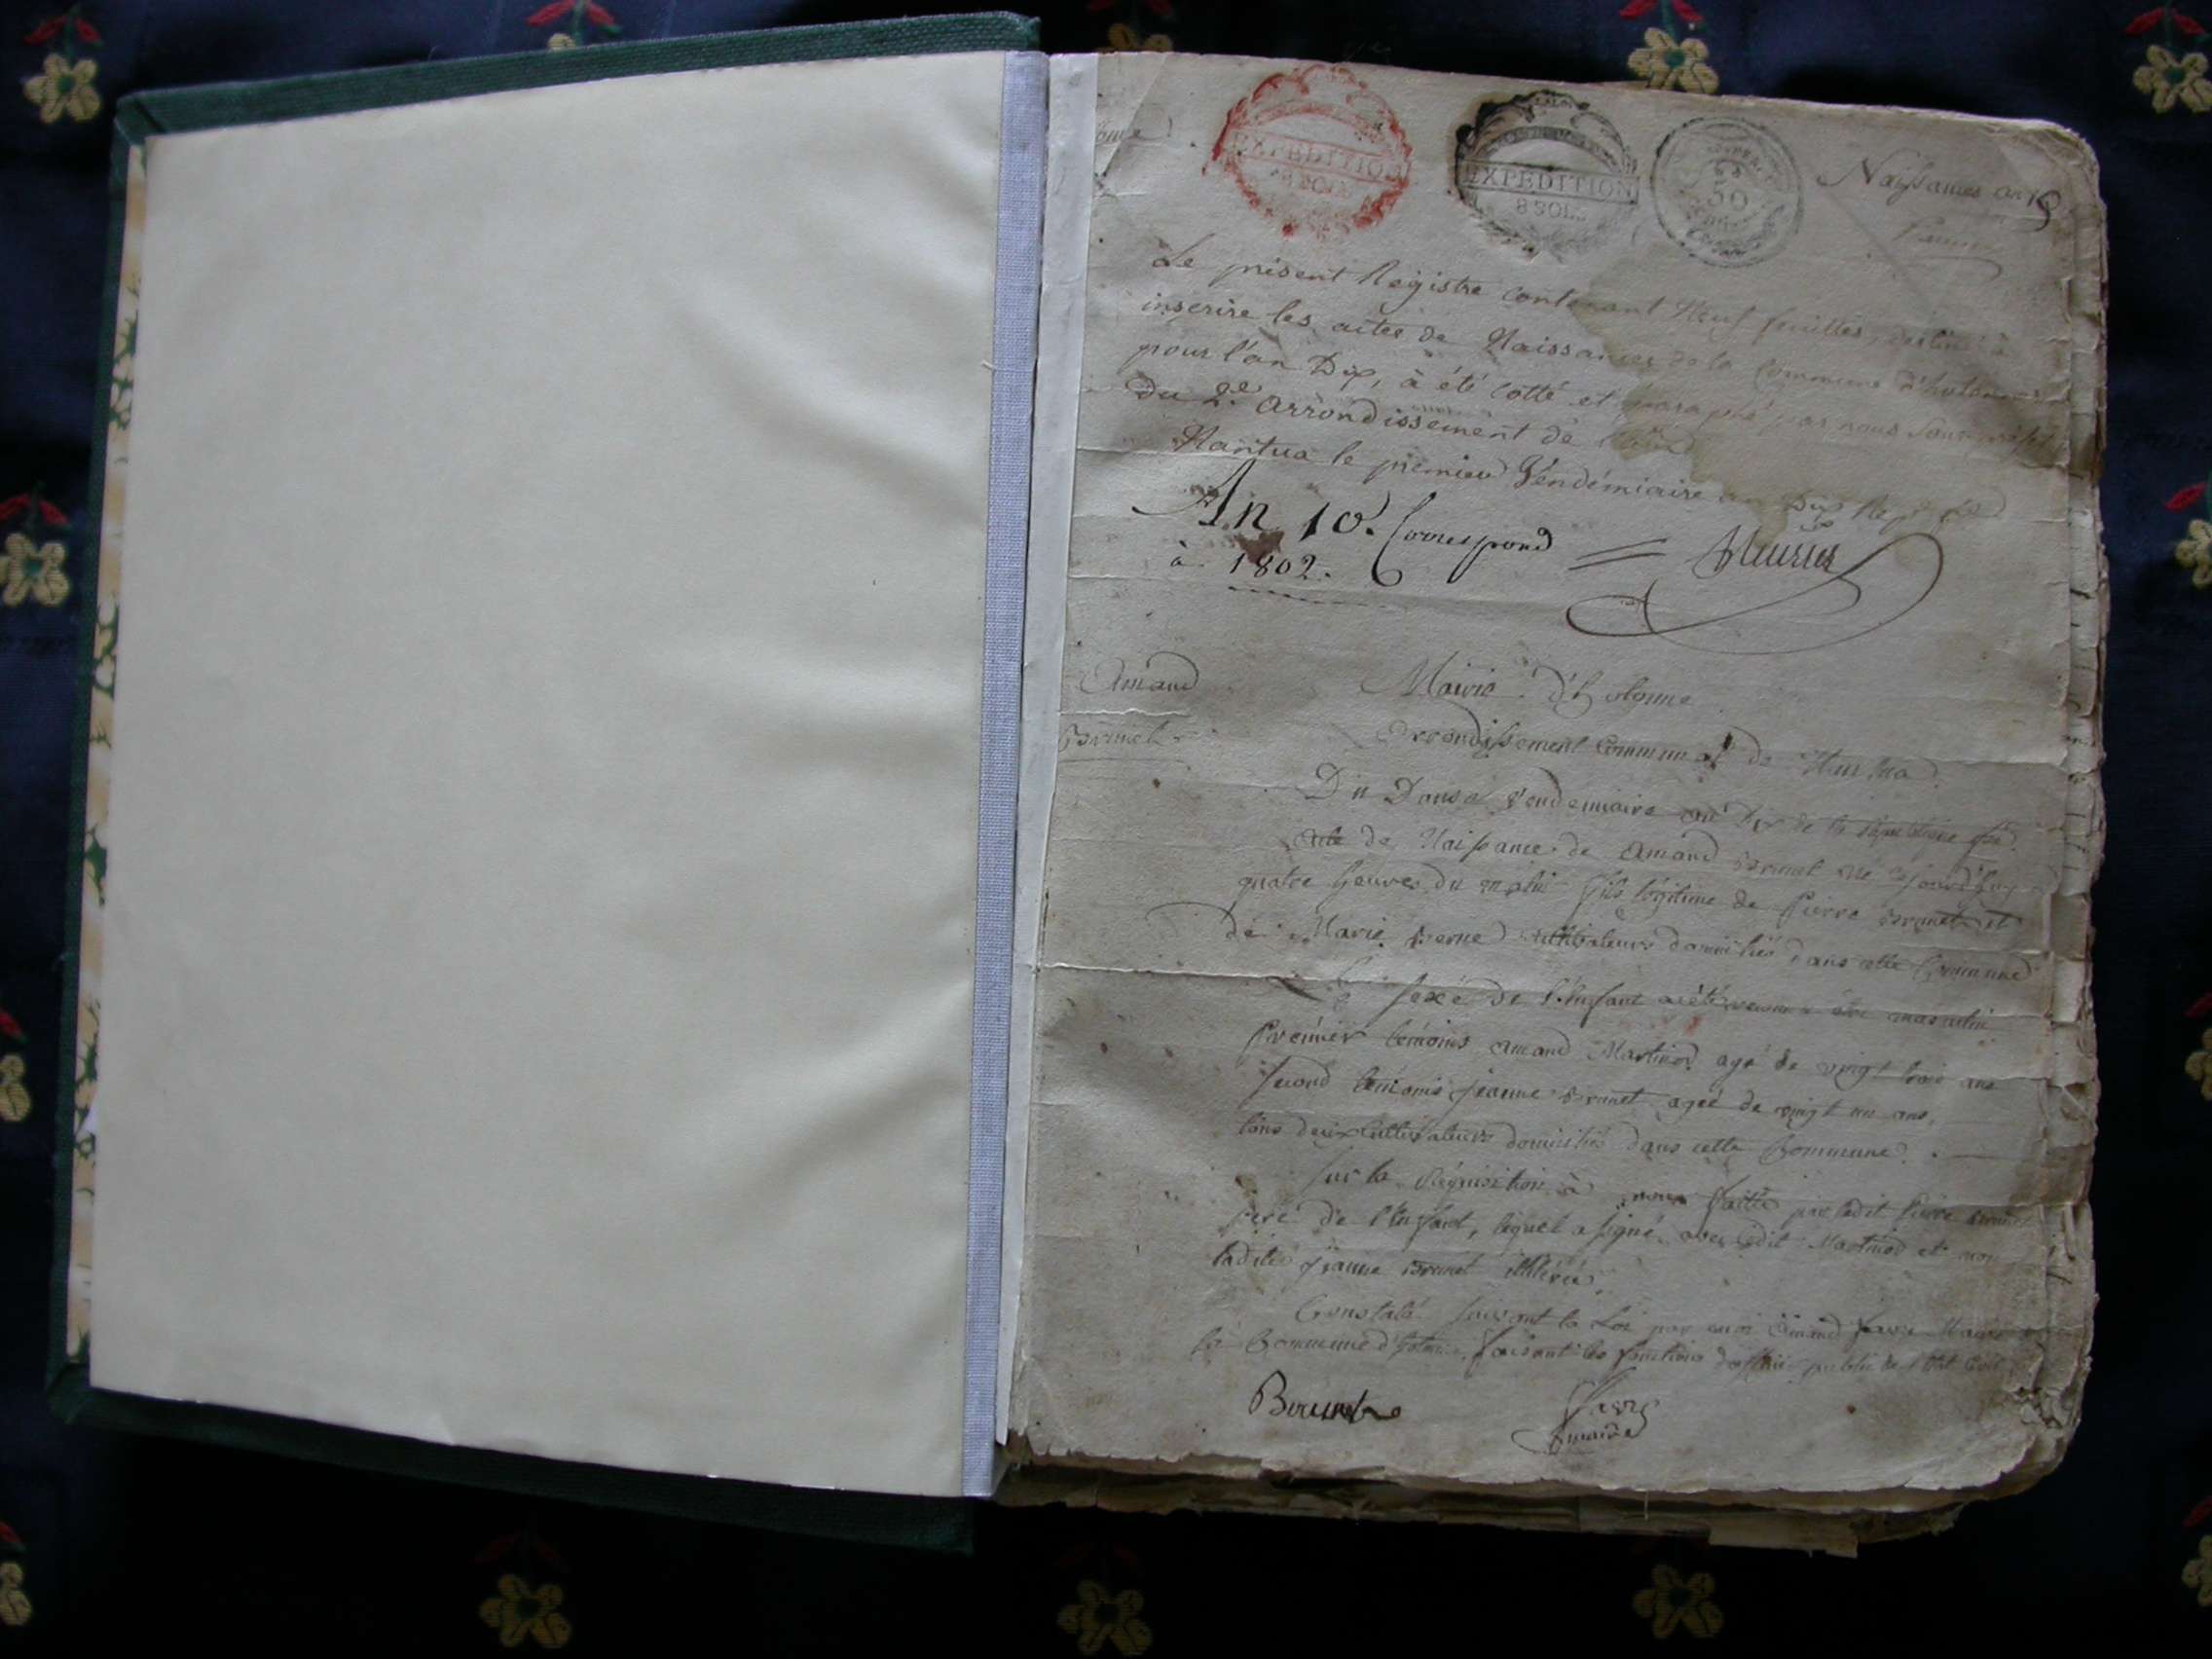 EXPEDITION
EXPEDITION
8 SOLS
50
Naissances an 10
Le présent Registre contenant Neuf feuilles, destiné à
inscrire les actes de Naissances de la Commune
pour l'an Dix, à été cotté et paraphé par nous Sousprefet
du 2e. arrondissement de
Nantua le premier Vendémiaire an Dix
An 10. Correspond
à 1802.
Amand
Brunet
Mairie d'h
arrondissement Communal de Nantua
Du Vendemiaire an Dix de la
acte de Naissance de amand Brunet né cejourd'huy
quatre heures du matin fils légitime de Pierre Brunet et
de Marie cultivateurs domiciliés dans cette Commune
Le sexe de l'Enfant a été reconnu être masculin
Premier temoins amand Martinod agé de vingt trois ans
second temoins jeanne Brunet ageé de vingt un ans,
tous deux Cultivateurs domiciliés dans cette Commune.
sur la Réquisition à nous faitte par ledit Pierre Brunet
pere de l'Enfant, lequel a signé avec ledit Martinod et non
ladite jeanne Brunet illitérée
Constaté suivant la Loi par moi amand favre Maire
la Commune faisant les fonctions d'officier public de l'Etat Civil
Brunet
favre
maire